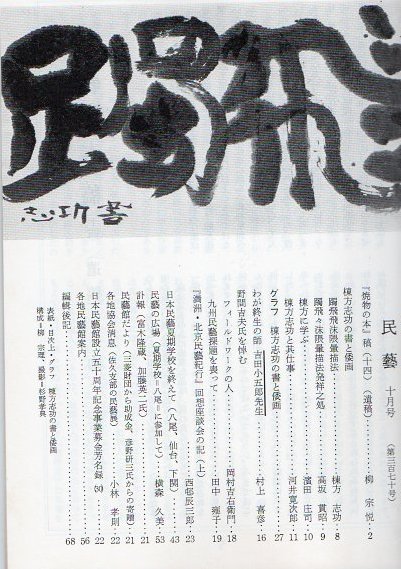 志功書
民藝 十月号 (第三百七十号)
『焼物の本』稿(十四)(遺稿)……柳 宗悦…2
棟方志功の書と倭画
躅飛飛沫隈暈描法……棟方 志功…8
躅飛々沫隈暈描法発祥之処……高坂 貫昭…9
棟方に学ぶ……濱田 庄司…10
棟方志功と其仕事……河井寛次郎…11
グラフ 棟方志功の書と倭画……27
わが終生の師 吉田小五郎先生……村上 喜彦…16
野間吉夫氏を悼む
フィールドワークの人……岡村吉右衛門…18
九州民藝探題を喪って……田中 雍子…19
『満洲・北京民藝紀行』回想座談会の記(上)
……西邨辰三郎…23
日本民藝夏期学校を終えて(八尾、仙台、下関)……43
民藝の広場(夏期学校=八尾=に参加して)……横森 久美…53
訃報(富木隆蔵、加藤英二氏)……21
民藝館だより(三菱財団から助成金、章野研三氏からの寄贈)……21
各地協会消息(佐久支部の民藝展)……小林 孝則…22
日本民藝館設立五十周年記念事業募金芳名録(30)……22
各地民藝館案内……56
編輯後記……68
表紙・目次上・グラフ 棟方志功の書と倭画
構成=柳 宗理、撮影=杉野孝典